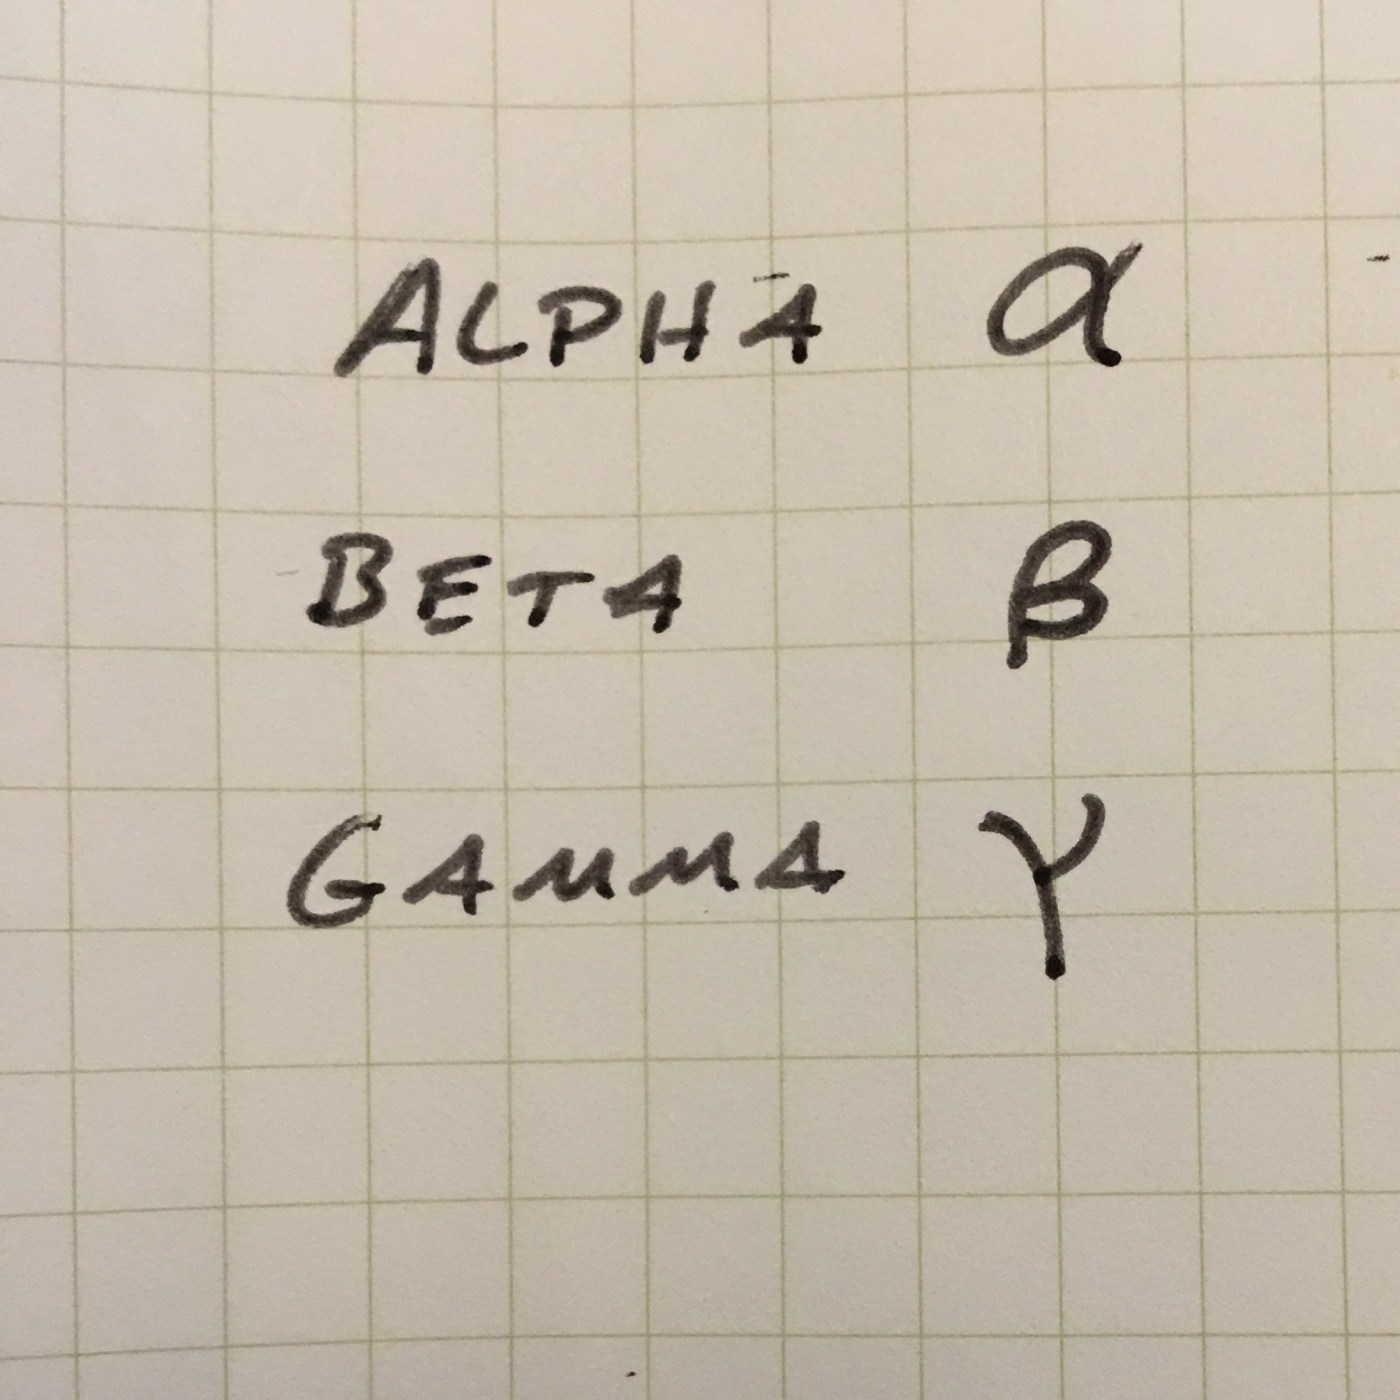 ALPHA α
BETA β
GAMMA γ